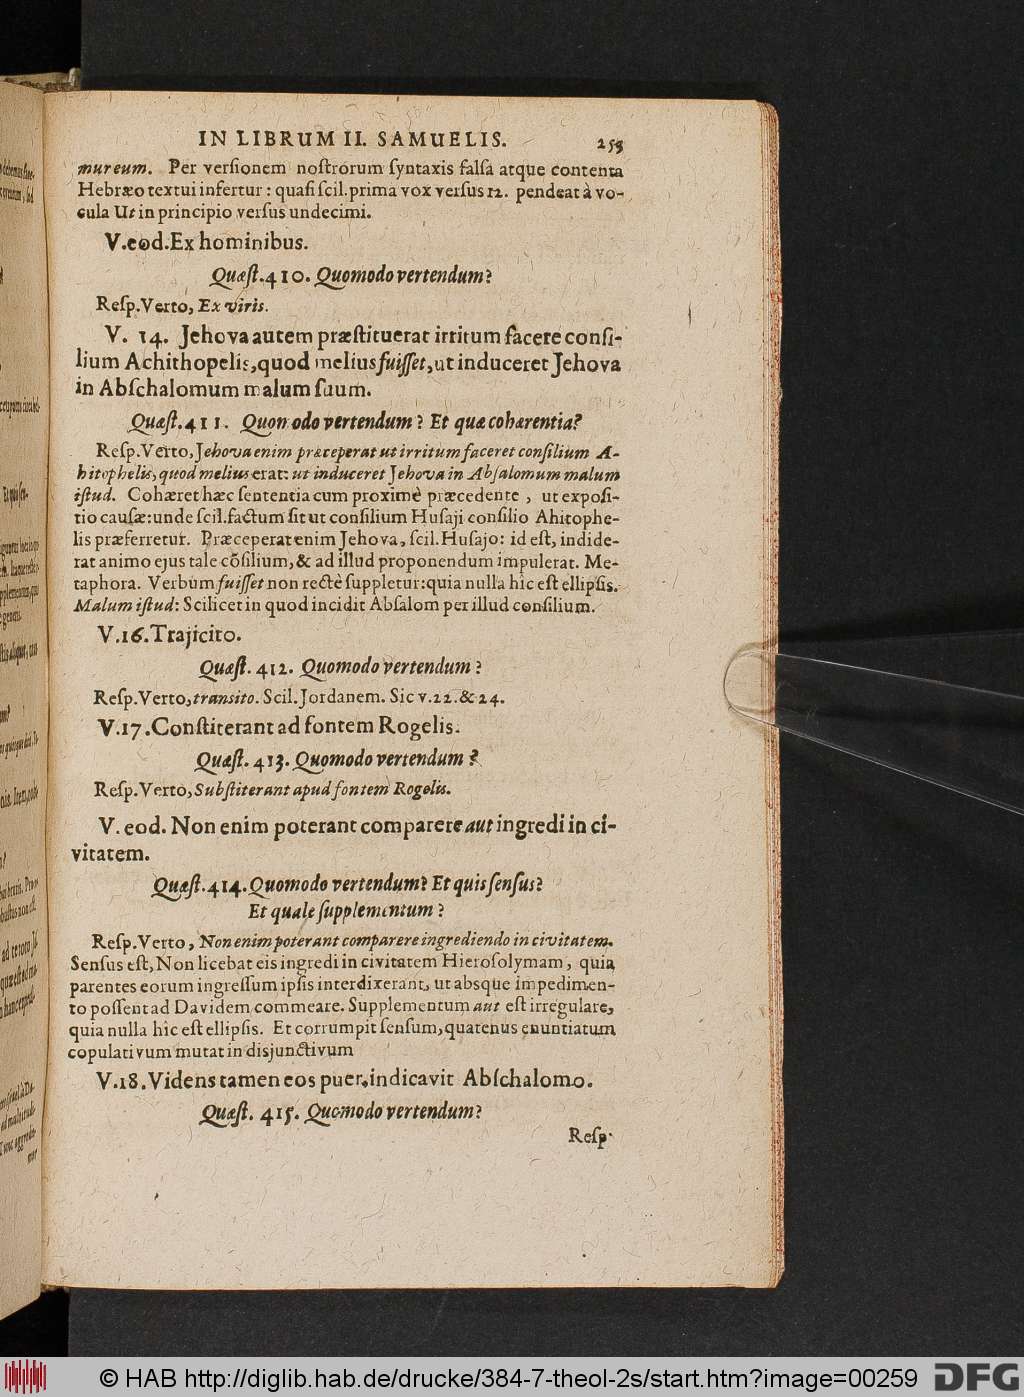 IN LIBRUM II. SAMUELIS. 253
mureum. Per verſionem noſtrorum ſyntaxis falſa atque contenta
Hebræo textui infertur: quaſi ſcil. prima vox verſus 12. pendeat à vo-
cula Ut in principio verſus undecimi.
V. eod. Ex hominibus.
Quæſt. 410. Quomodo vertendum?
Reſp. Verto, Ex viris.
V. 14. Jehova autem præſtituerat irritum facere conſi-
lium Achithopelis, quod melius fuiſſet, ut induceret Jehova
in Abſchalomum malum ſuum.
Quæſt. 411. Quomodo vertendum? Et quæ cohærentia?
Reſp. Verto, Jehova enim præceperat ut irritum faceret conſilium A-
hitophelis, quod melius erat: ut induceret Jehova in Abſalomum malum
iſtud. Cohæret hæc ſententia cum proximè præcedente, ut expoſi-
tio cauſæ: unde ſcil. factum ſit ut conſilium Huſaji conſilio Ahitophe-
lis præferretur. Præceperat enim Jehova, ſcil. Huſajo: id eſt, indide-
rat animo ejus tale cõſilium, & ad illud proponendum impulerat. Me-
taphora. Verbum fuiſſet non rectè ſuppletur: quia nulla hîc eſt ellipſis.
Malum iſtud: Scilicet in quod incidit Abſalom per illud conſilium.
V. 16. Trajicito.
Quæſt. 412. Quomodo vertendum?
Reſp. Verto, tranſito. Scil. Jordanem. Sic v. 22. & 24.
V. 17. Conſtiterant ad fontem Rogelis.
Quæſt. 413. Quomodo vertendum?
Reſp. Verto, Subſtiterant apud fontem Rogelis.
V. eod. Non enim poterant comparere aut ingredi in ci-
vitatem.
Quæſt. 414. Quomodo vertendum? Et quis ſenſus?
Et quale ſupplementum?
Reſp. Verto, Non enim poterant comparere ingrediendo in civitatem.
Senſus eſt, Non licebat eis ingredi in civitatem Hieroſolymam, quia
parentes eorum ingreſſum ipſis interdixerant, ut absque impedimen-
to poſſent ad Davidem commeare. Supplementum aut eſt irregulare,
quia nulla hîc eſt ellipſis. Et corrumpit ſenſum, quatenus enuntiatum
copulativum mutat in disjunctivum
V. 18. Videns tamen eos puer, indicavit Abſchalomo.
Quæſt. 415. Quomodo vertendum?
Reſp.
© HAB http://diglib.hab.de/drucke/384-7-theol-2s/start.htm?image=00259
DFG